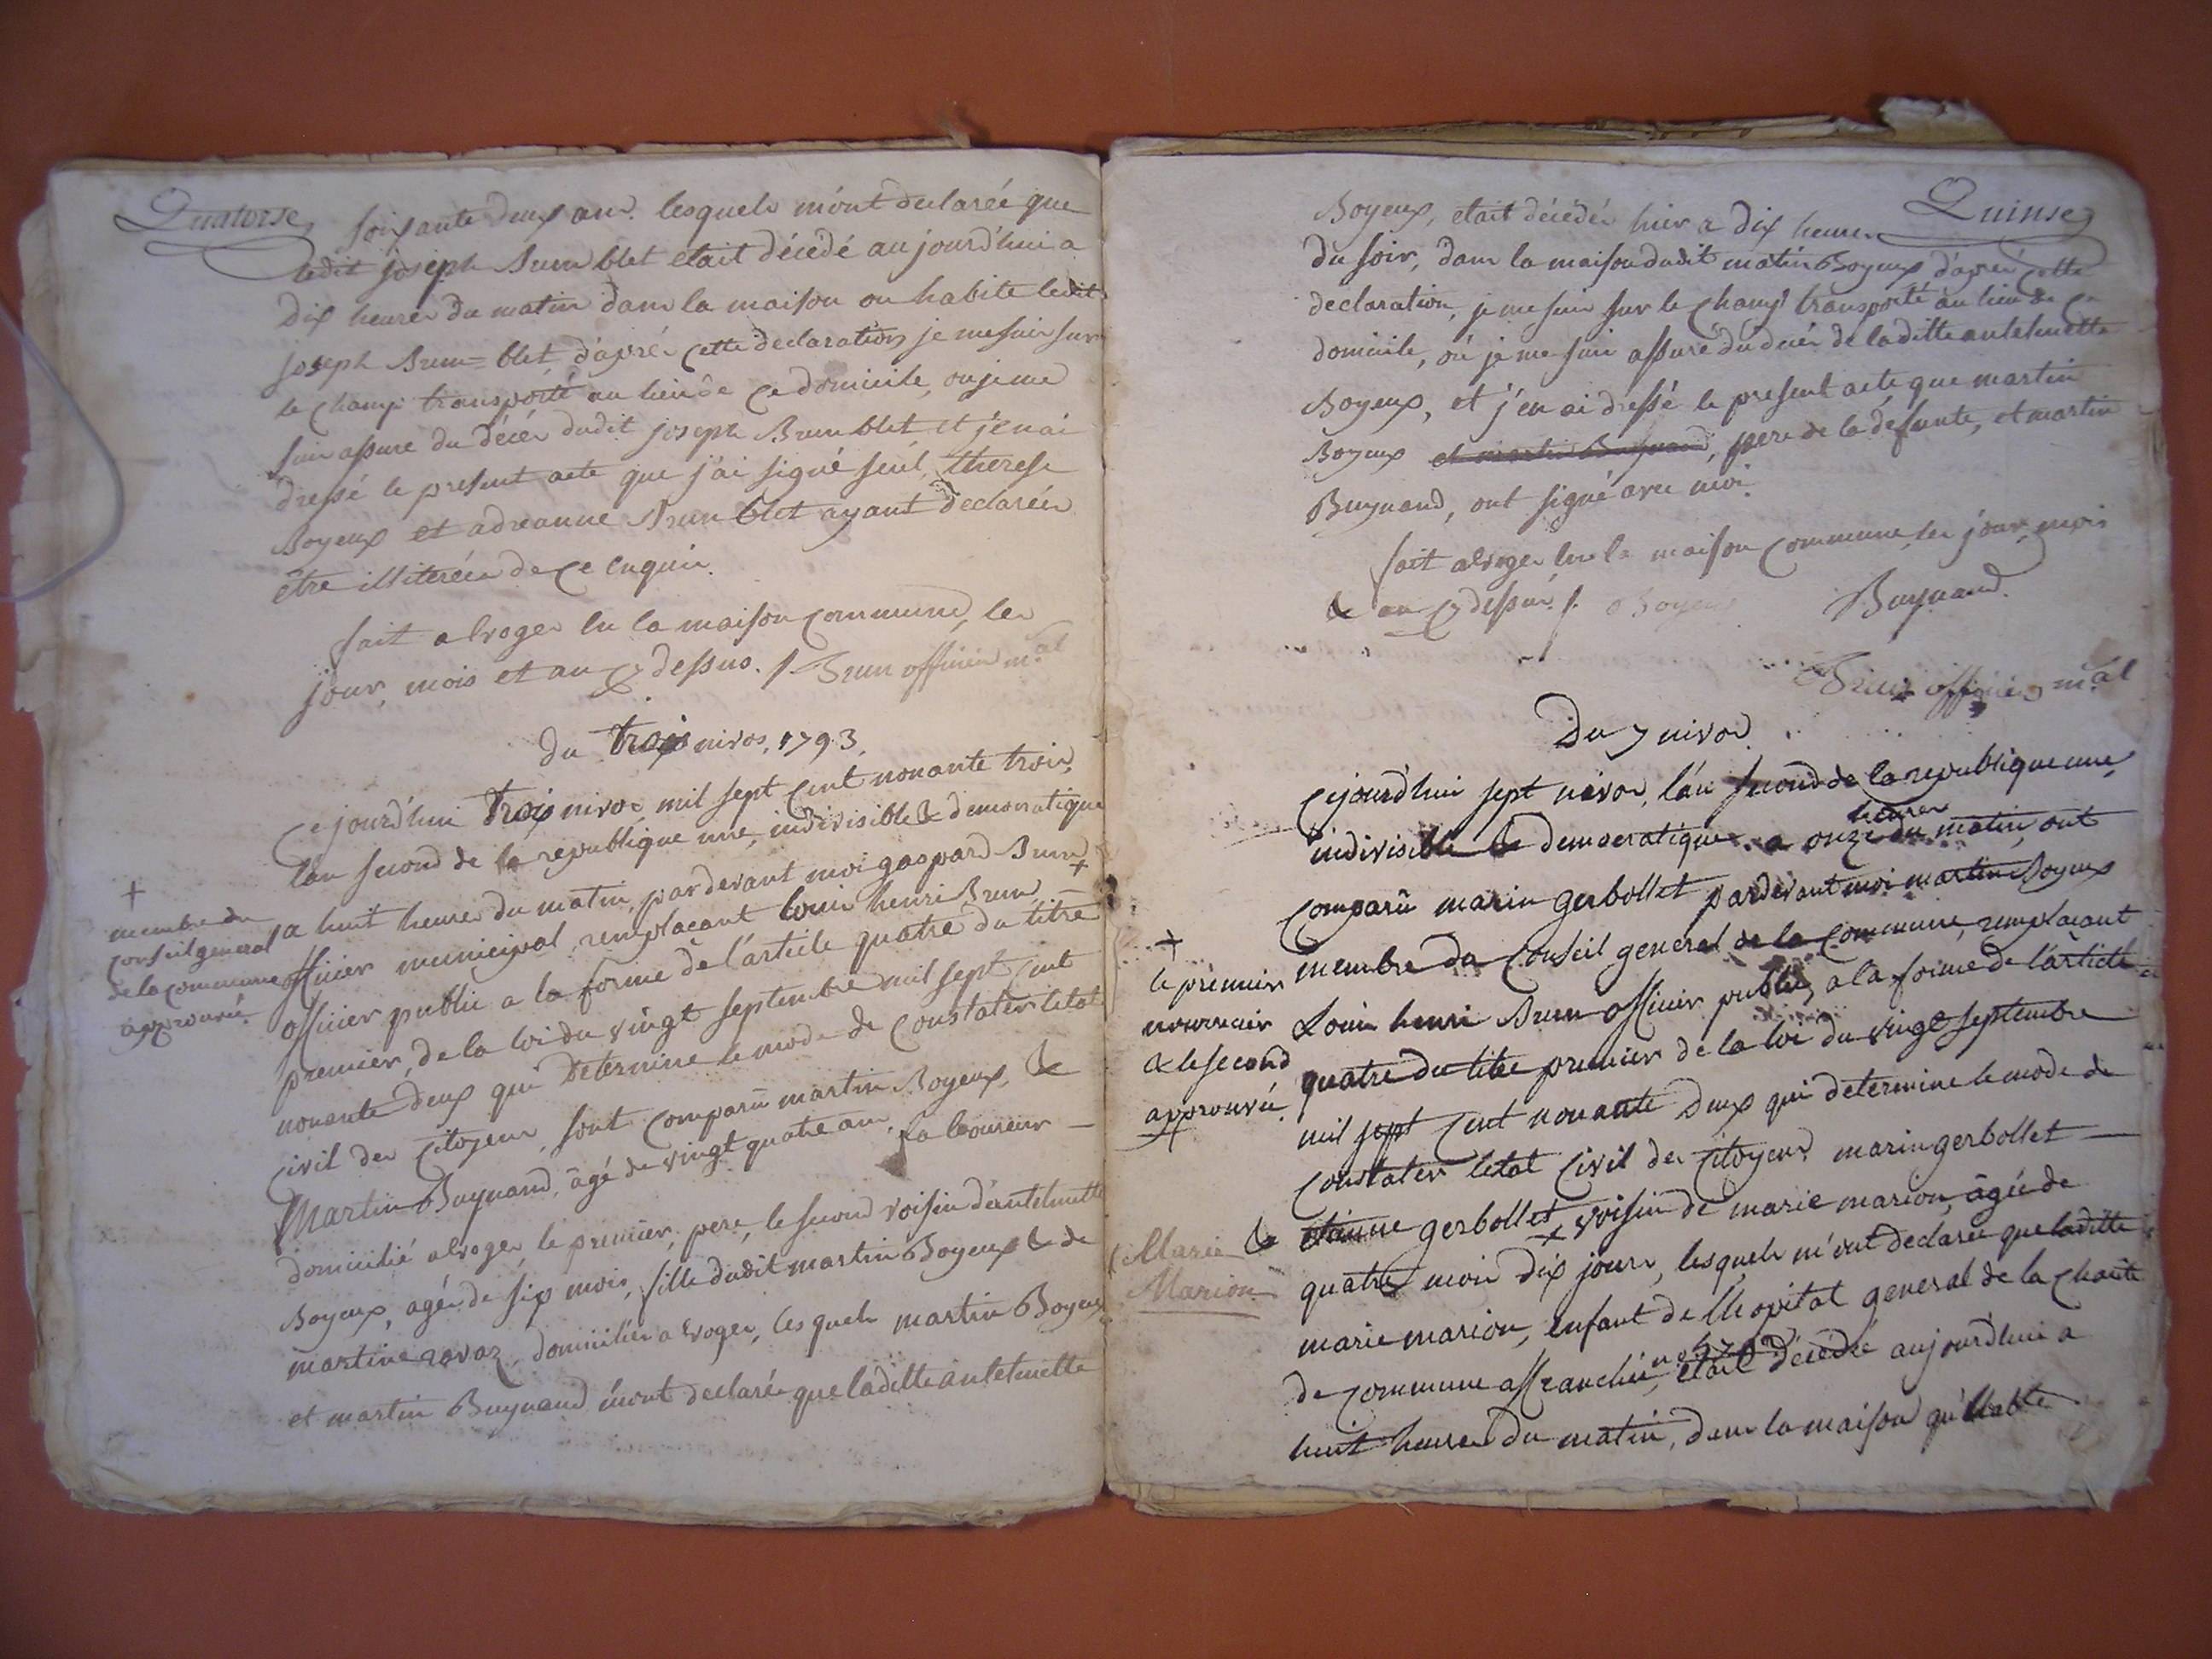 Quatorse
soixante deux ans. lesquels m'ont declarée que
ledit joseph Brun blet etait décédé aujourd'hui a
dix heures du matin dans la maison ou habite ledit
joseph Brun=blet, d'après cette declaration je me suis sur
le champ transporté au lieu de ce domicile, ou je me
suis assure du décès dudit joseph Brun blet et j'en ai
dressé le present acte que j'ai signé seul, therese
Boyeux et adreanne Brun blet ayant declarées
être illiterées de ce enquis.
fait a Lvoges en la maison commune, les
jour, mois et an cy dessus. /. Brun officier m.al
du trois nivos, 1793.
Cejourd'hui trois nivos mil sept cent nonante trois,
l'an second de la republique une, indivisible & democratique
a huit heures du matin, pardevant moi gaspard Brun +
officier municipal remplaçant louis henri Brun,
officier public a la forme de l'article quatre du titre
premier, de la loi du vingt septembre mil sept cent
nonante deux qui determine le mode de constater l'etat
civil des citoyens, sont comparû martin Boyeux, &
Martin Buynand, âgé de vingt quatre ans, laboureur
domicilié a Lvoges, le premier, pere, le second voisin d'antelmette
Boyeux, agée de six mois, fille dudit martin Boyeux & de
martine ravaz, domiciliés a Lvoges, lesquels martin Boyeux
et martin Buynand m'ont declarée que laditte antelmette
+
membre du
conseil general
de la commune
approuvé
Quinse
Boyeux, etait décédée hier a dix heures
du soir, dans la maison dudit matin Boyeux d'après cette
declaration, je me suis sur le champ transporté au lieu de ce
domicile, où je me suis assuré du décés de laditte antelmette
Boyeux, et j'en ai dressé le present acte que martin
Boyeux et martin Buynand, pere de la defunte, et martin
Buynand, ont signé avec moi.
fait a Lvoges en la maison commune, les jour, mois
& an cy dessus. /. Boyeux Buynand.
Brun officier m.al
Du 7 nivos
Cejourd'hui sept nivos, l'an second de la republique une,
indivisible & democratique a onze heures du matin, ont
comparû marin gerbollet pardevant moi martin Boyeux
membre du conseil general de la commune, remplaçant
Louis henri Brun officier public, a la forme de l'article
quatre du titre premier de la loi du vingt septembre
mil sept cent nonante deux qui determine le mode de
constater l'etat civil des citoyens. marin gerbollet
& etienne gerbollet + voisin de marie marion, âgée de
quatre mois dix jours, lesquels m'ont declarée que laditte
marie marion, enfant de l'hopital general de la charité
de commune affranchie, etait décédée aujourd'hui a
huit heures du matin, dans la maison qu'habite
+
le premier
nourricier
& le second
approuvé
Marie
Marion